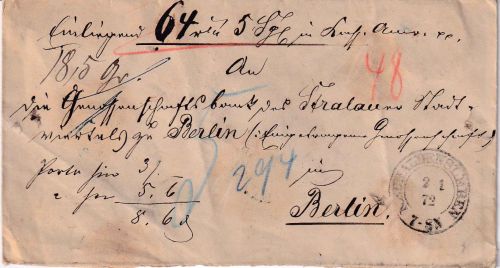 Einliegend 64 rtl 5 Sgl in Kass. Anw. pp.
18,5 gr.
48
An
die Genossenschaftsbank des Stralauer Stadt-
viertels zu Berlin (: Eingetragene Genossenschaft)
Porto hier 3/.
5.6
8.6
294
in
Berlin.
2 1
72